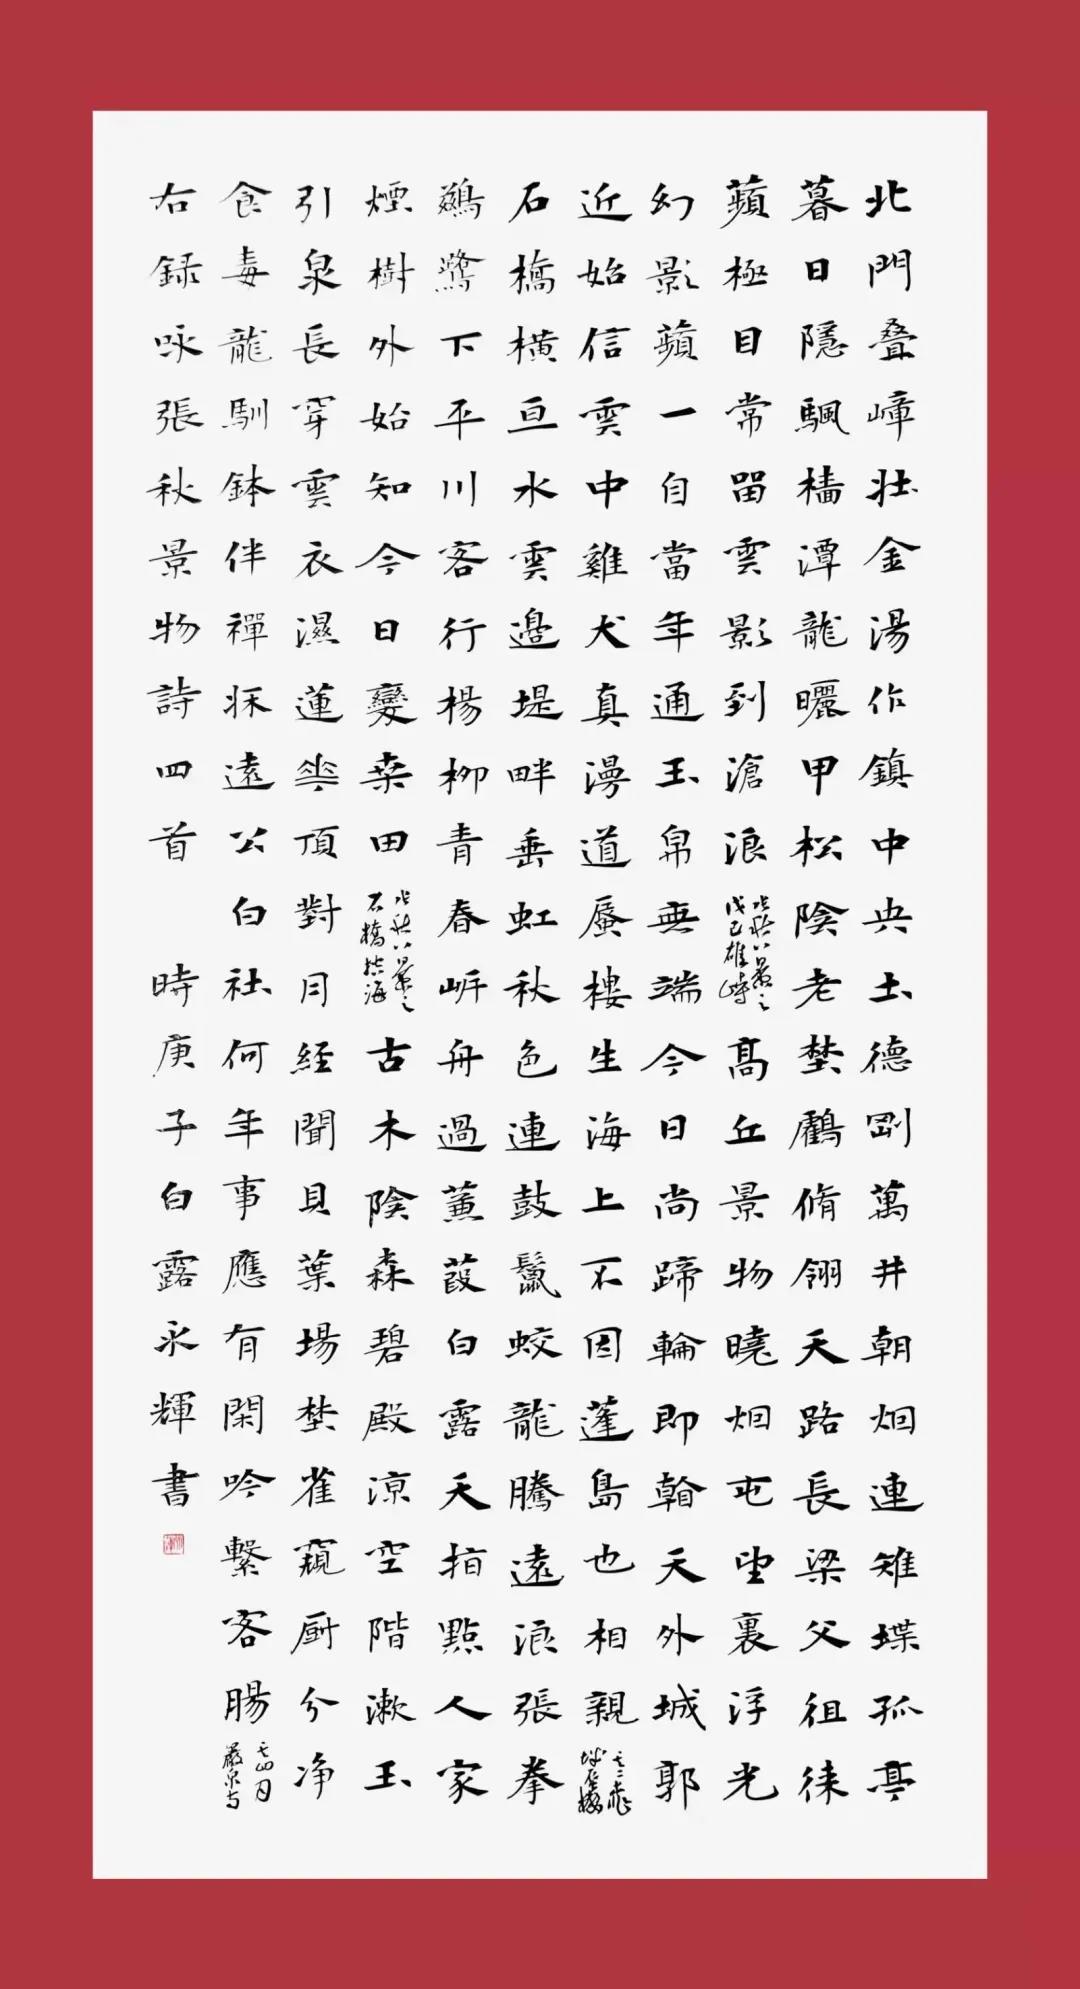 北門叠嶂壯金湯作鎮中央土德剛萬井朝烟連雉堞孤亭
暮日隱颿檣潭龍曬甲松陰老埜鸖脩翎天路長梁父徂徠
蘋極目常留雲影到滄浪
張秋八景之
戊己雄峙
高丘景物曉烟屯望裏浮光
幻影蘋一自當年通玉帛無端今日尚蹄輪即翰天外城郭
近始信雲中雞犬真漫道蜃樓生海上不因蓬島也相親
其二
石橋橫亘水雲邊堤畔垂虹秋色連鼓鬣蛟龍騰遠浪張拳
鷺下平川客行楊柳青春岸舟過蒹葭白露天指點人家
煙樹外始知今日變桑田
張秋八景之
石橋控海
古木陰森碧殿涼空階漱玉
引泉長穿雲衣濕蓮華頂對月經聞貝葉場埜雀窺厨分净
食毒龍馴鉢伴禪牀遠公白社何年事應有閑吟繫客腸
其四
右録咏張秋景物詩四首 時庚子白露永輝書